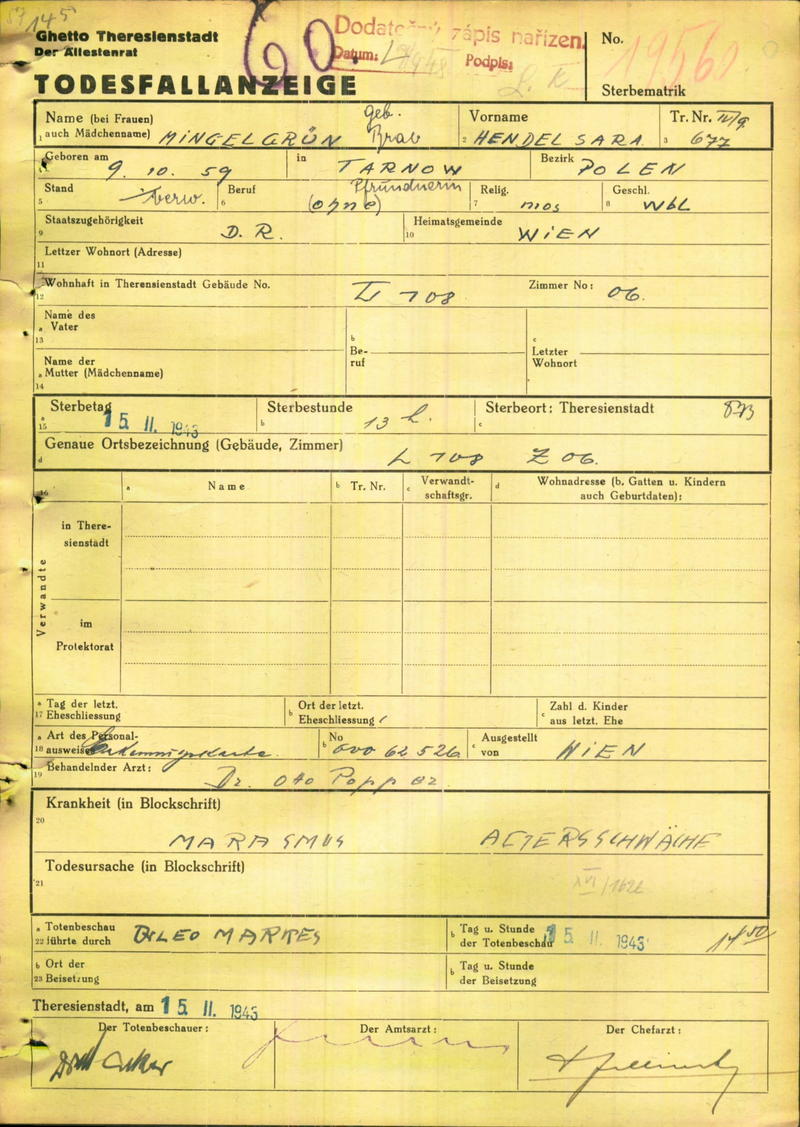 145
Ghetto Theresienstadt
Der Ältestenrat
TODESFALLANZEIGE
60
Dodatečný zápis nařízen.
Datum:
Podpis:
No.
19560
Sterbematrik
Name (bei Frauen)
1 auch Mädchenname) MINGELGRÜN geb.
2 Vorname HENDEL SARA
3 Tr. Nr. IV/9. 677
Geboren am 9. 10. 59 in TARNOW Bezirk POLEN
5 Stand verw.
6 Beruf Pfründnerin (ohne)
7 Relig. mos
8 Geschl. wbl
9 Staatszugehörigkeit D. R.
10 Heimatsgemeinde WIEN
11 Lettzer Wohnort (Adresse)
12 Wohnhaft in Theresienstadt Gebäude No. L 108 Zimmer No: 06.
13 a Name des Vater
14 a Name der Mutter (Mädchenname)
b Be-
ruf
c Letzter
Wohnort
15 a Sterbetag 15. II. 1943
b Sterbestunde 13 h.
c Sterbeort: Theresienstadt
d Genaue Ortsbezeichnung (Gebäude, Zimmer) L 108 Z 06.
16 a Name
b Tr. Nr.
c Verwandt-
schaftsgr.
d Wohnadresse (b. Gatten u. Kindern
auch Geburtdaten):
Verwandte
in There-
sienstadt
im
Protektorat
a Tag der letzt.
17 Eheschliessung
b Ort der letzt.
Eheschliessung
c Zahl d. Kinder
aus letzt. Ehe
a Art des Personal-
18 ausweises Erkennungskarte
b No 000 62 526
c Ausgestellt
von WIEN
19 Behandelnder Arzt: Dr. Otto Popper
Krankheit (in Blockschrift)
20 MARASMUS ALTERSSCHWÄCHE
Todesursache (in Blockschrift)
21
XVI/1626
a Totenbeschau
22 führte durch DR LEO MARKES
b Tag u. Stunde
der Totenbeschau 15. II. 1943 14 00
b Ort der
23 Beisetzung
b Tag u. Stunde
der Beisetzung
Theresienstadt, am 15. II. 1943
Der Totenbeschauer:
Der Amtsarzt:
Der Chefarzt: